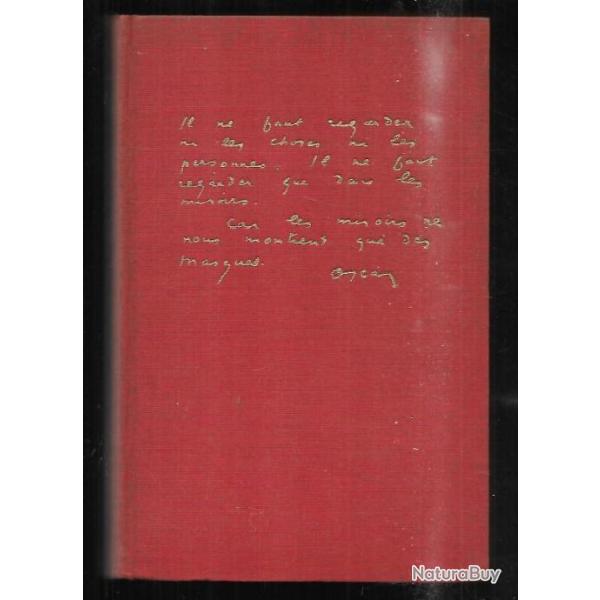 Il ne faut regarder
ni les choses ni les
personnes. Il ne faut
regarder que dans les
miroirs.
Car les miroirs ne
nous montrent que des
masques.
Oscar
NaturaBuy